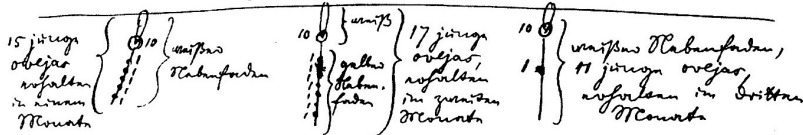 15 junge
ovejas
erhalten
in einem
Monate
10
weißer
Nebenfaden
10
weiß
gelber
Neben-
faden
17 junge
ovejas,
erhalten
im zweiten
Monate
10
1
weißer Nebenfaden,
11 junge ovejas,
erhalten im dritten
Monate